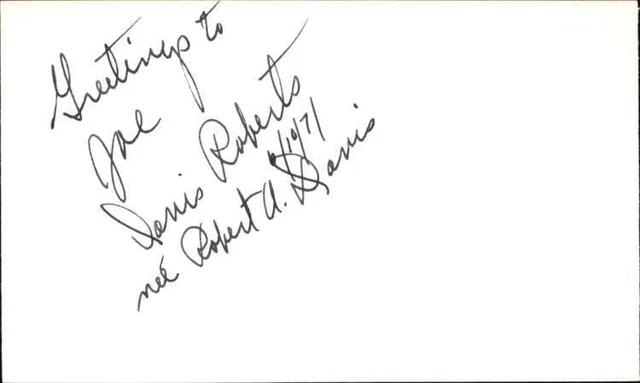 Greetings to
Joe
Davis Roberts
6/10/71
neé Robert A. Davis